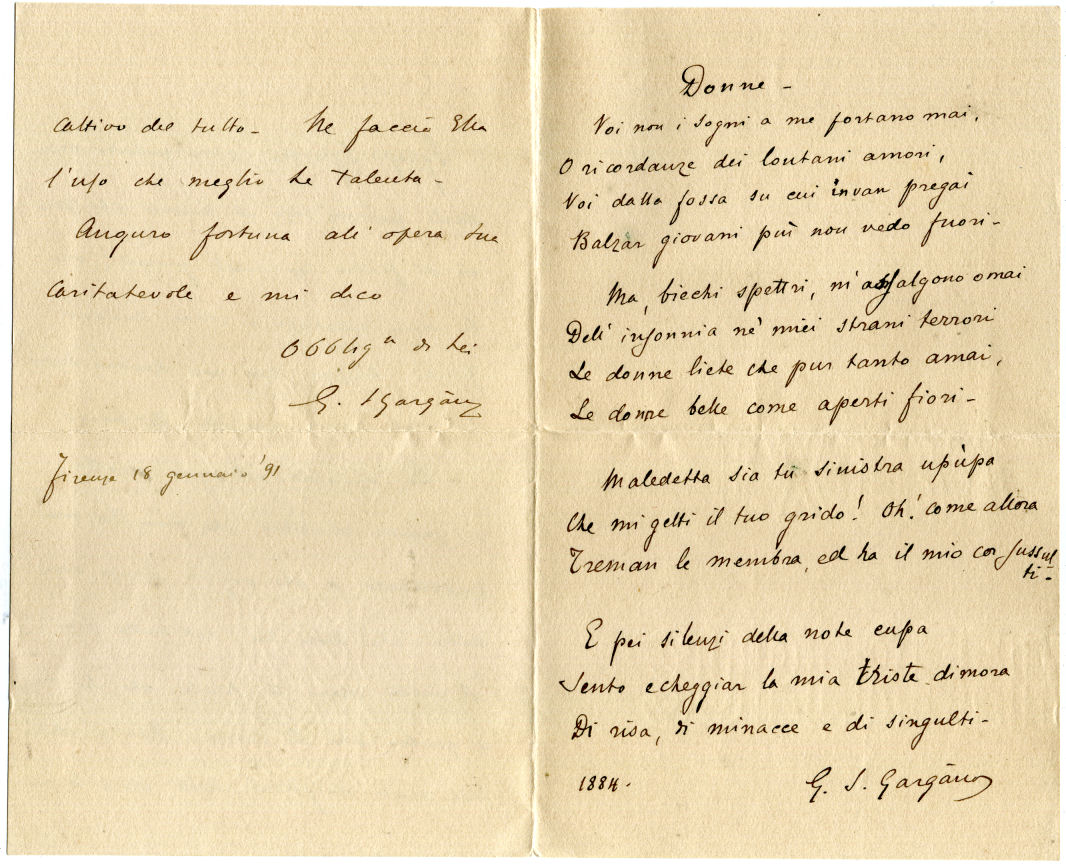 cattivo del tutto - Ne faccia Ella
l'uso che meglio Le talenta -
Auguro fortuna all'opera sua
caritatevole e mi dico
Obbligº di Lei
G. S. Gargàno
Firenze 18 gennaio '91
Donne -
Voi non i sogni a me portano mai,
O ricordanze dei lontani amori,
Voi dalla fossa su cui invan pregai
Balzar giovani più non vedo fuori -
Ma, biechi spettri, m'assalgono omai
Dell'insonnia ne' miei strani terrori
Le donne liete che pur tanto amai,
Le donne belle come aperti fiori -
Maledetta sia tu sinistra upùpa
Che mi getti il tuo grido! Oh! come allora
Treman le membra, ed ha il mio cor sussul-
ti -
E pei silenzi della note cupa
Sento echeggiar la mia triste dimora
Di risa, di minacce e di singulti -
1884.
G. S. Gargàno